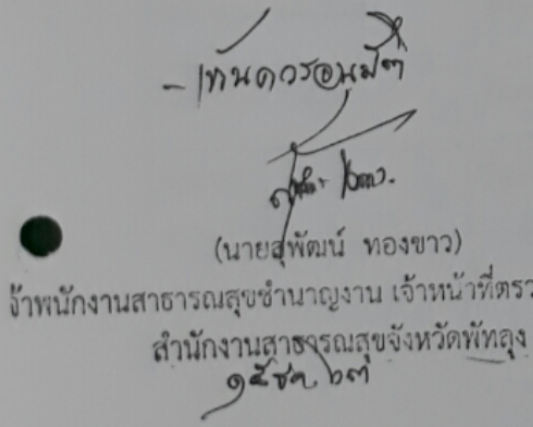 - เห็นควรอนุมัติ
(นายสุพัฒน์ ทองขาว)
จ้าพนักงานสาธารณสุขชำนาญงาน เจ้าหน้าที่ตรว
สำนักงานสาธารณสุขจังหวัดพัทลุง
๑๕ ธค. ๖๓